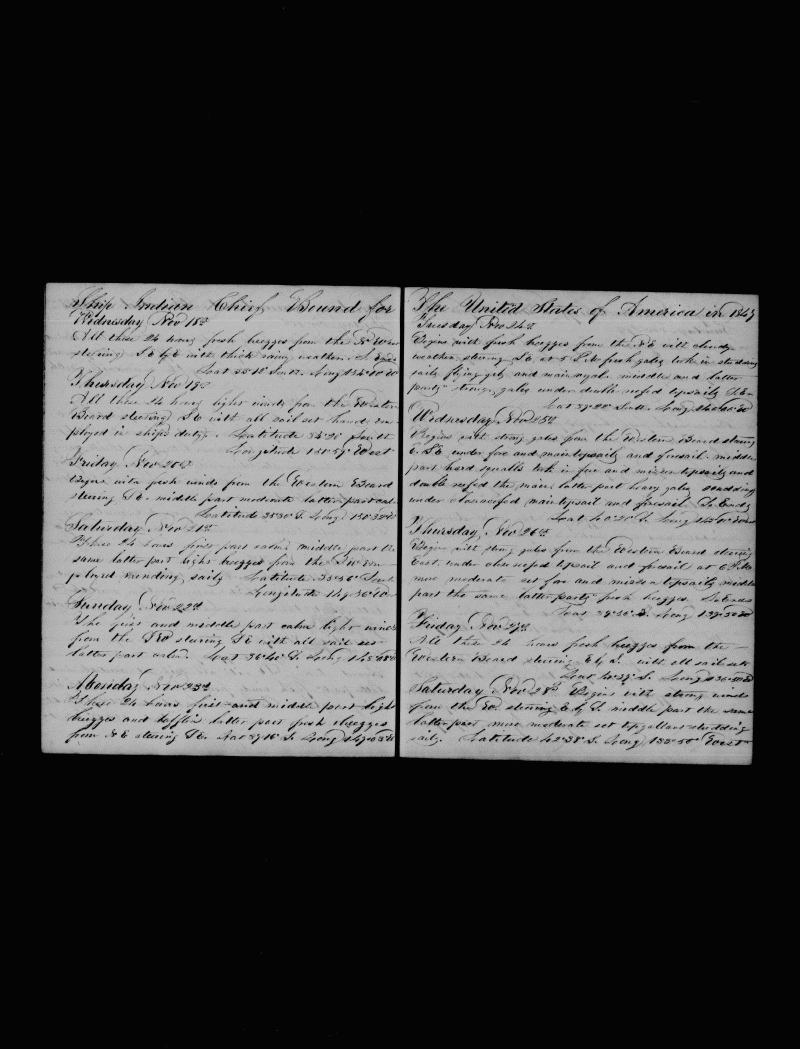 Ship Indian Chief Bound for
Wednesday Nov 18th
All these 24 hours fresh breezes from the N West
steering S E by E with thick rainy weather.
Thursday Nov 19th
All these 24 hours light winds from the Western
Board steering S E with all sail set hands em
ployed in ships duty. Latitude 34°20' South
Longitude 151°59' West
Friday Nov 20th
Begins with fresh winds from the Western Board
steering S E. middle part moderate latter part cal
Latitude 35°30' S. Long
Saturday Nov 21st
These 24 hours first part calm, middle part the
same latter part light breezes from the
ployed mending sails Latitude South
Longitude
Sunday Nov 22nd
The first and middle part calm light winds
from the steering S E with all sail set
latter part calm. Lat 36°40' S. Long
Monday Nov 23rd
These 24 hours first and middle part light
breezes and baffling latter part fresh breezes
from N E steering S E. Lat S. Long
The United States of America in 1847
Tuesday Nov 24th
Begins with fresh breezes from the N E with cloudy
weather steering S E at 5 P.M. fresh gales took in studding
sails flying gib and main royal middle and latter
parts strong gales under double reefed topsails
Lat South. Long
Wednesday Nov 25th
Begins with strong gales from the Western Board steering
under fore and main topsails and foresail middle
part hard squalls took in fore and mizzen topsails and
double reefed the main latter part heavy gales scudding
under close reefed main topsail and foresail
Lat 40°20' S. Long
Thursday Nov 26th
Begins with strong gales from the Western Board steering
East. under close reefed topsail and foresail at 6 P.M.
more moderate set fore and mizzen topsails middle
part the same latter part fresh breezes
Lat S. Long
Friday Nov 27th
All these 24 hours fresh breezes from the
Western Board steering E by S. with all sail set
Lat S. Long
Saturday Nov 28th Begins with strong winds
from the W. steering E by S. middle part the same
latter part more moderate set topgallant studding
sails. Latitude 42°38' S. Long West